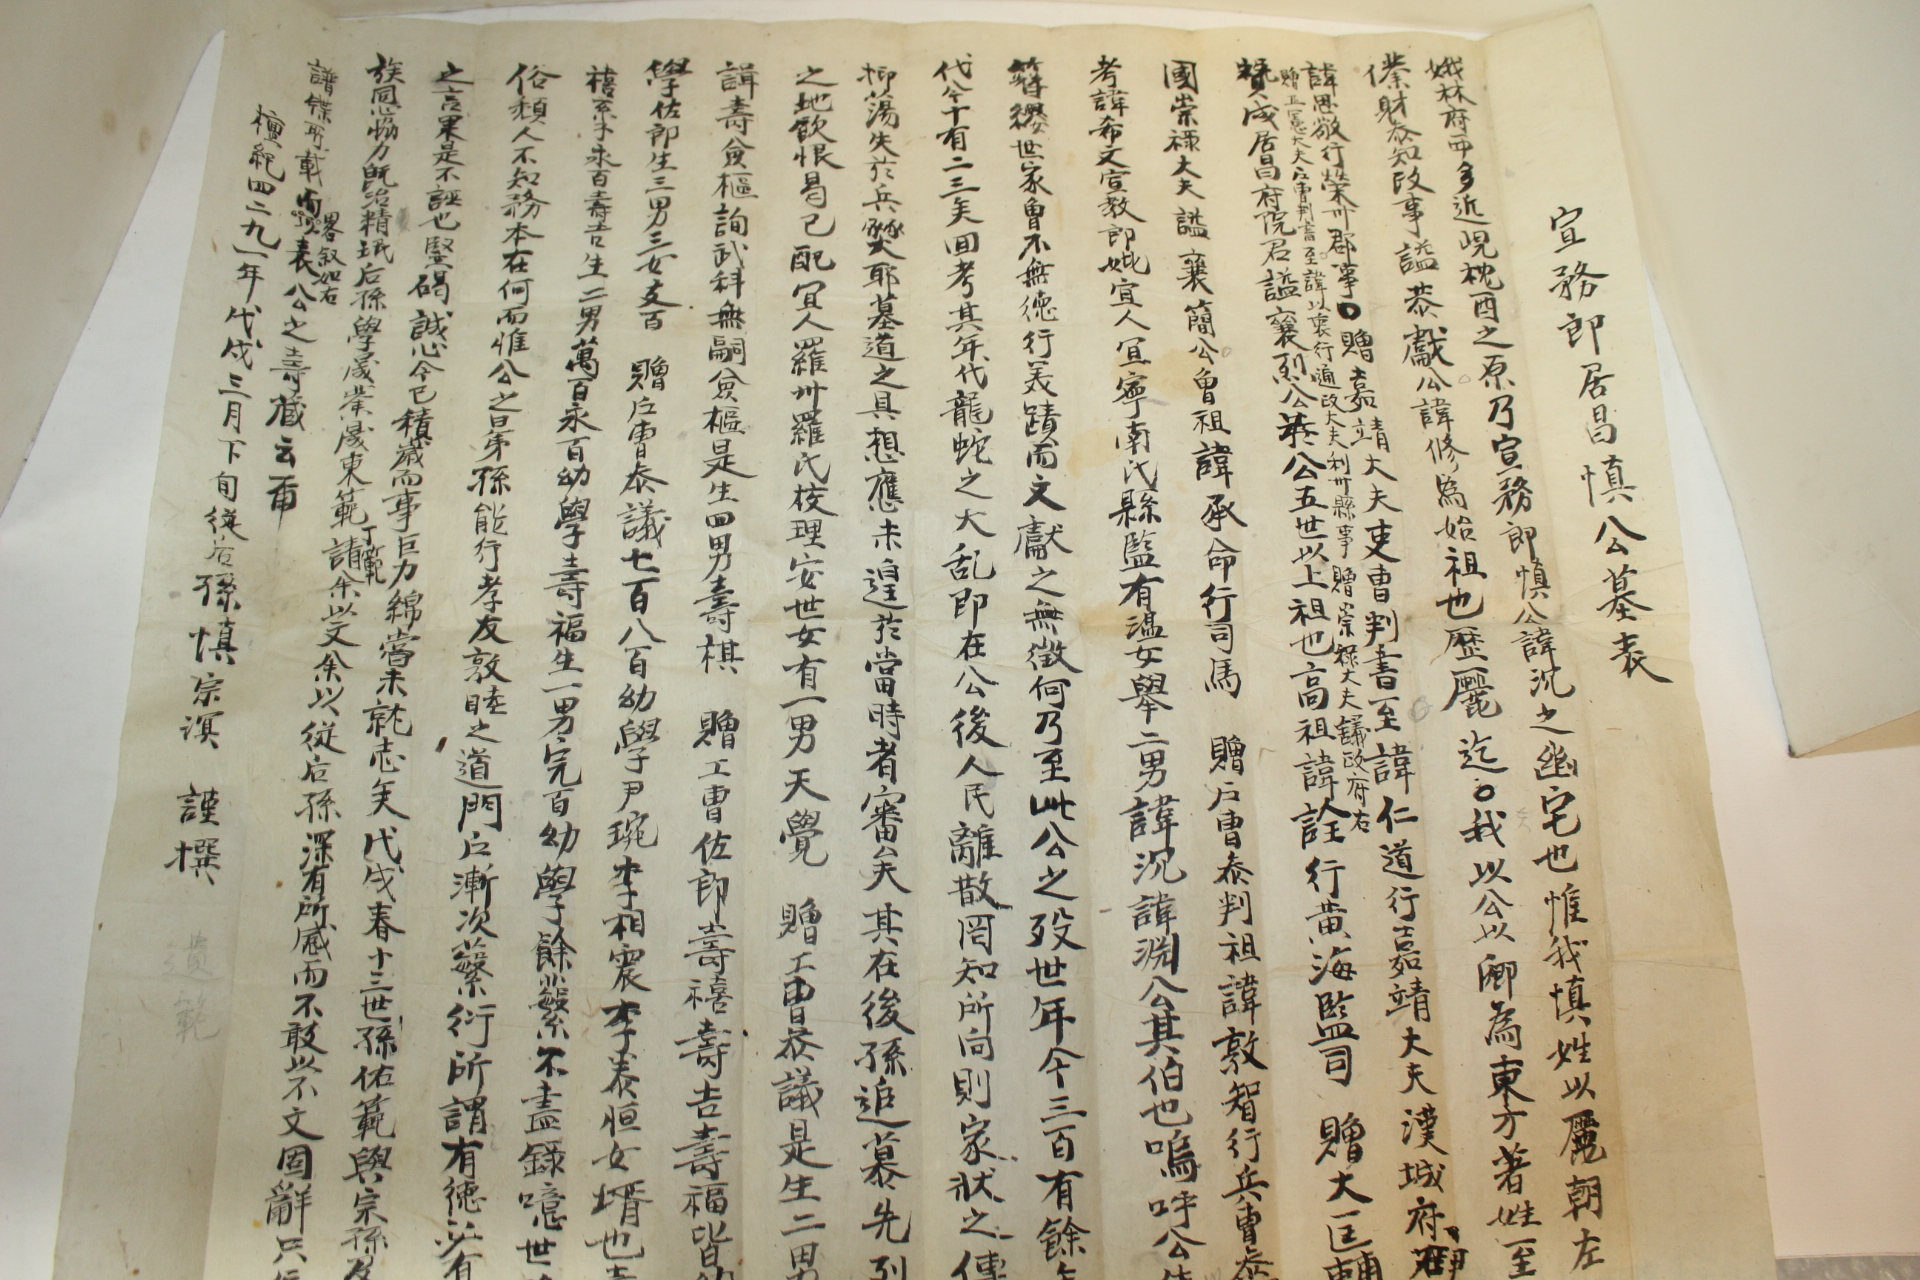 宣務郎居昌愼公墓表
娥林府西多近峴枕酉之原乃宣務郎愼公諱沉之幽宅也惟我愼姓以麗朝左
僕射叅知政事諡恭獻公諱修爲始祖也歷麗迄我以公以卿爲東方著姓至
諱思敬行榮州郡事贈嘉靖大夫吏曹判書至諱仁道行嘉靖大夫漢城府尹
贈正憲大夫戶曹判書至諱以衷行通政大夫利州縣事贈崇祿大夫議政府右
贊成居昌府院君諡襄烈公於公五世以上祖也高祖諱詮行黃海監司贈大匡輔
國崇祿大夫諡襄簡公曾祖諱承命行司馬贈戶曹叅判祖諱敦智行兵曹叅
考諱希文宣教郎妣宜人宜寧南氏縣監有溫女舉二男諱沉諱淵公其伯也嗚呼公
簪纓世家曾不無德行美蹟而文獻之無徵何乃至此公之歿世年今三百有餘
代今十有二三矣回考其年代龍蛇之大乱即在公後人民離散罔知所向則家狀之傳
抑蕩失於兵燹耶墓道之具想應未遑於當時者審矣其在後孫追慕先
之地飮恨曷已配宜人羅州羅氏校理安世女有一男天覺贈工曹叅議是生二男
諱壽僉樞詢武科無嗣僉樞是生四男壽棋贈工曹佐郎壽禧壽吉壽福皆
學佐郎生三男三女支百贈戶曹叅議七百八百幼學尹琬李相震李泰恒女壻也
禧系子永百壽吉生二男萬百永百幼學壽福生一男完百幼學餘繁不盡錄噫世
俗頹人不知務本在何而惟公之昆弟孫能行孝友敦睦之道門戶漸次蘩衍所謂有德必有
之言果是不誣也竪碣誠心今已積歲而事巨力綿嘗未就志矣戊戌春十三世孫佑範與宗孫
族同心恊力旣治精珉后孫學晟業晟東範丁範請余以文余以從后孫深有所感而不敢以不文固辭只
譜牒所載畧敍如右以表公之壽藏云甫
檀紀四二九一年戊戌三月下旬從后孫愼宗溟謹撰
遺範